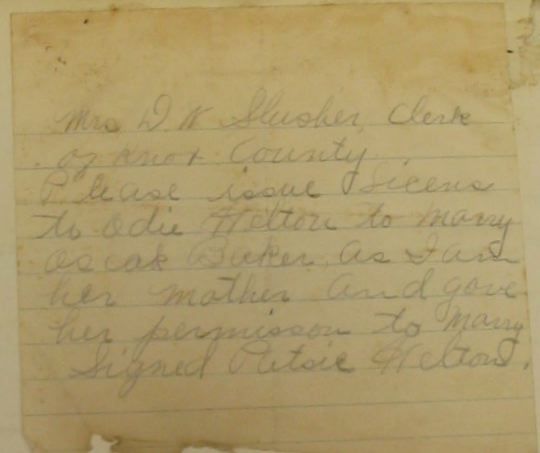 Mrs D. W Slusher, Clerk
of Knox County
Please issue Licens
to Odie Helton to marry
Oscar Baker as I am
her mother and gave
her permisson to marry
Signed Betsie Helton.